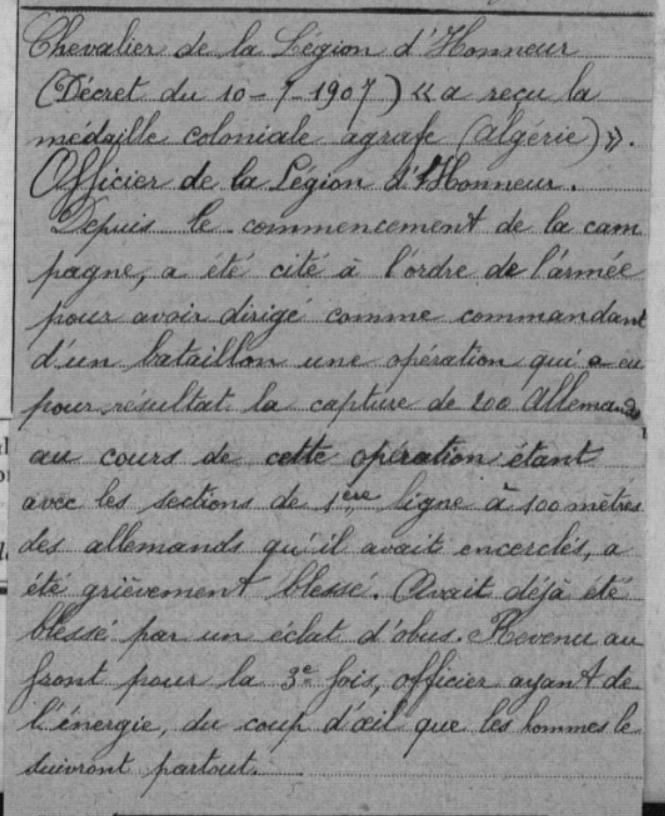 Chevalier de la Légion d'Honneur
(Décret du 10-7-1907) « a reçu la
médaille coloniale agrafe (Algérie) ».
Officier de la Légion d'Honneur.
Depuis le commencement de la cam
pagne, a été cité à l'ordre de l'armée
pour avoir dirigé comme commandant
d'un bataillon une opération qui a eu
pour résultat la capture de 200 Allemands
au cours de cette opération étant
avec les sections de 1ère ligne à 100 mètres
des allemands qu'il avait encerclés, a
été grièvement blessé. Avait déjà été
blessé par un éclat d'obus. Revenu au
front pour la 3e fois, officier ayant de
l'énergie, du coup d'œil que les hommes le
suivront partout.